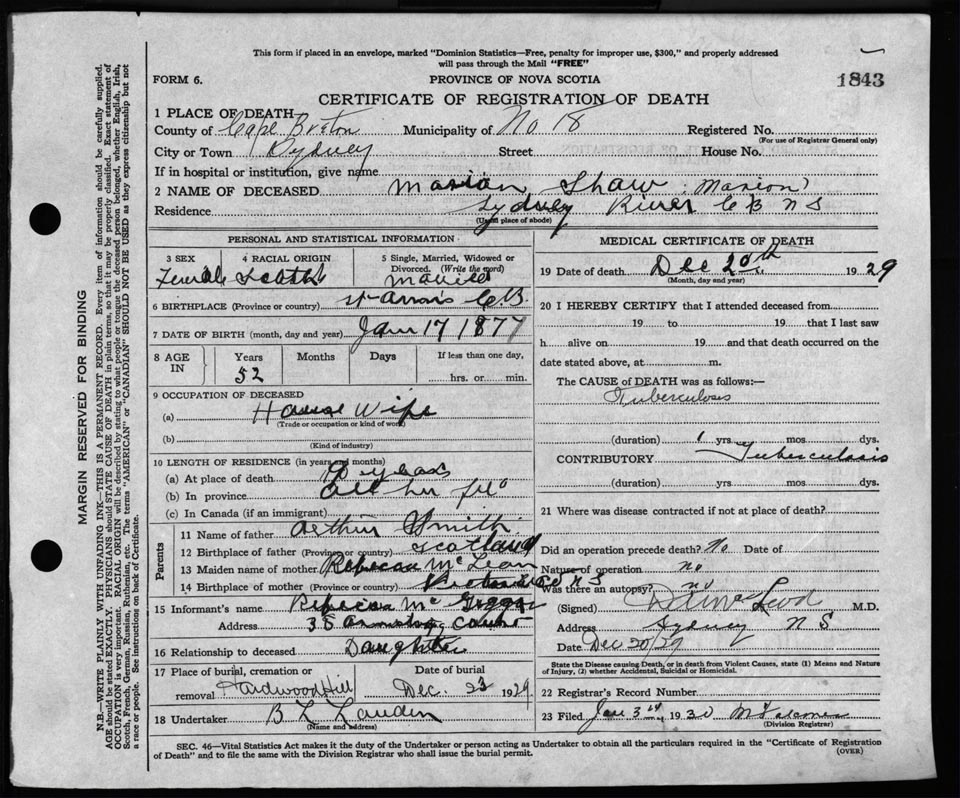 This form if placed in an envelope, marked "Dominion Statistics—Free, penalty for improper use, $300," and properly addressed
will pass through the Mail "FREE"
FORM 6. PROVINCE OF NOVA SCOTIA 1843
CERTIFICATE OF REGISTRATION OF DEATH
1 PLACE OF DEATH
County of Cape Breton Municipality of No 18 Registered No.
(For use of Registrar General only)
City or Town Sydney Street House No.
If in hospital or institution, give name
2 NAME OF DECEASED Marian Shaw (Marion)
Residence Sydney River C B N S
(Usual place of abode)
PERSONAL AND STATISTICAL INFORMATION
3 SEX 4 RACIAL ORIGIN 5 Single, Married, Widowed or Divorced. (Write the word)
Female Scotch Married
6 BIRTHPLACE (Province or country) St Anns C B
7 DATE OF BIRTH (month, day and year) Jan 17 1877
8 AGE IN Years Months Days If less than one day,
52 hrs. or min.
9 OCCUPATION OF DECEASED
(a) House Wife
(Trade or occupation or kind of work)
(b)
(Kind of industry)
10 LENGTH OF RESIDENCE (in years and months)
(a) At place of death years
(b) In province all her life
(c) In Canada (if an immigrant)
Parents
11 Name of father Arthur Smith
12 Birthplace of father (Province or country) Scotland
13 Maiden name of mother Rebecca McLean
14 Birthplace of mother (Province or country) N S
15 Informant's name Rebecca Mc
Address 35 Armstrong Court
16 Relationship to deceased Daughter
17 Place of burial, cremation or removal Hardwood Hill Date of burial Dec. 23 1929
18 Undertaker B L
(Name and address)
MEDICAL CERTIFICATE OF DEATH
19 Date of death Dec 20th 1929
(Month, day and year)
20 I HEREBY CERTIFY that I attended deceased from
19 to 19 that I last saw
h alive on 19 and that death occurred on the
date stated above, at m.
The CAUSE of DEATH was as follows:—
Tuberculosis
(duration) 1 yrs. mos. dys.
CONTRIBUTORY Tuberculosis
(duration) yrs. mos. dys.
21 Where was disease contracted if not at place of death?
Did an operation precede death? No Date of
Nature of operation no
Was there an autopsy? no
(Signed) McLeod M.D.
Address Sydney N S
Date Dec 20/29
State the Disease causing Death, or in death from Violent Causes, state (1) Means and Nature
of Injury, (2) whether Accidental, Suicidal or Homicidal.
22 Registrar's Record Number
23 Filed Jan 3rd 1930
(Division Registrar)
SEC. 46—Vital Statistics Act makes it the duty of the Undertaker or person acting as Undertaker to obtain all the particulars required in the "Certificate of Registration
of Death" and to file the same with the Division Registrar who shall issue the burial permit. (OVER)
MARGIN RESERVED FOR BINDING
N.B.—WRITE PLAINLY WITH UNFADING INK—THIS IS A PERMANENT RECORD. Every item of information should be carefully supplied.
AGE should be stated EXACTLY. PHYSICIANS should STATE CAUSE OF DEATH in plain terms, so that it may be properly classified. Exact statement of
OCCUPATION is very important. RACIAL ORIGIN will be described by stating to what people or tongue the deceased person belonged, whether English, Irish,
Scotch, French, German, Russian, Ruthenian, etc. The terms "AMERICAN" or "CANADIAN" SHOULD NOT BE USED as they express citizenship but not
a race or people. See instructions on back of Certificate.